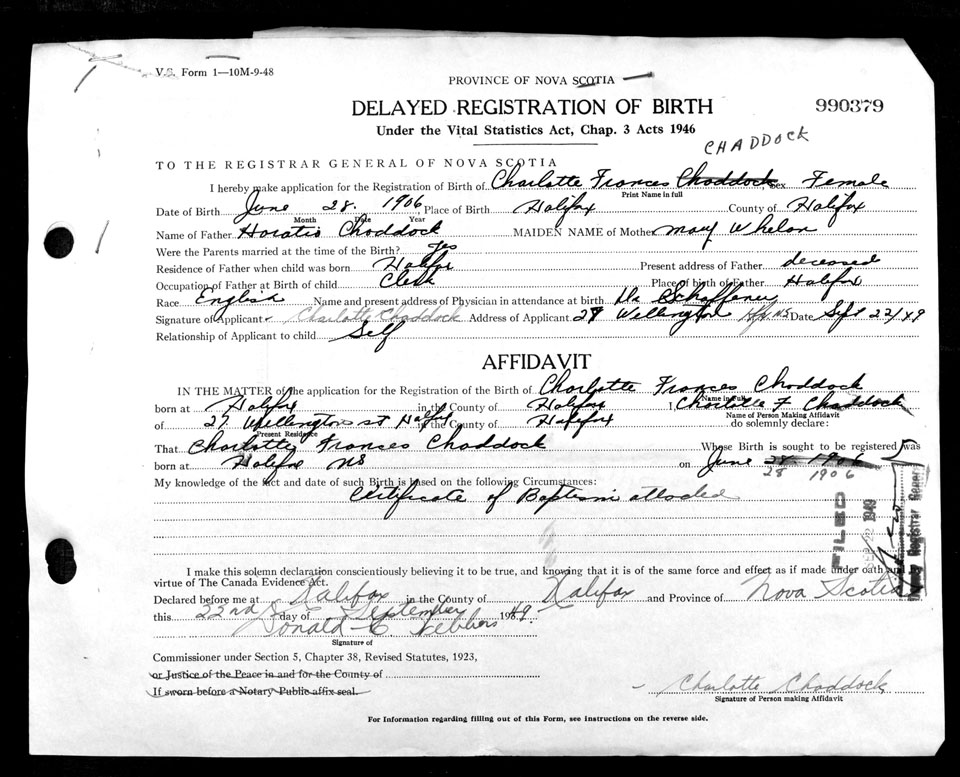 V.S. Form 1—10M-9-48
PROVINCE OF NOVA SCOTIA
DELAYED REGISTRATION OF BIRTH
990379
Under the Vital Statistics Act, Chap. 3 Acts 1946
CHADDOCK
TO THE REGISTRAR GENERAL OF NOVA SCOTIA
I hereby make application for the Registration of Birth of Charlotte Frances Chaddock Sex Female
Print Name in full
Date of Birth June 28. 1906 Place of Birth Halifax County of Halifax
Month Date Year
Name of Father Horatio Chaddock MAIDEN NAME of Mother Mary Whelan
Were the Parents married at the time of the Birth? Yes
Residence of Father when child was born Halifax Present address of Father deceased
Occupation of Father at Birth of child Clerk Place of birth of Father Halifax
Race English Name and present address of Physician in attendance at birth Dr
Signature of Applicant Charlotte Chaddock Address of Applicant 27 Wellington Hfx NS Date Sept 22/49
Relationship of Applicant to child Self
AFFIDAVIT
IN THE MATTER of the application for the Registration of the Birth of Charlotte Frances Chaddock
Name in Full
born at Halifax in the County of Halifax I Charlotte F Chaddock
Name of Person Making Affidavit
of 27 Wellington St Halifax in the County of Halifax do solemnly declare:
Present Residence
That Charlotte Frances Chaddock Whose Birth is sought to be registered was
born at Halifax NS on June 28 1906
28 1906
My knowledge of the fact and date of such Birth is based on the following Circumstances:
Certificate of Baptism attached
FILED
22 1949
Registrar General
I make this solemn declaration conscientiously believing it to be true, and knowing that it is of the same force and effect as if made under oath and by
virtue of The Canada Evidence Act.
Declared before me at Halifax in the County of Halifax and Province of Nova Scotia
this 22nd day of September 1949
Donald C
Signature of
Commissioner under Section 5, Chapter 38, Revised Statutes, 1923,
or Justice of the Peace in and for the County of
If sworn before a Notary Public affix seal.
Charlotte Chaddock
Signature of Person making Affidavit
For Information regarding filling out of this Form, see instructions on the reverse side.